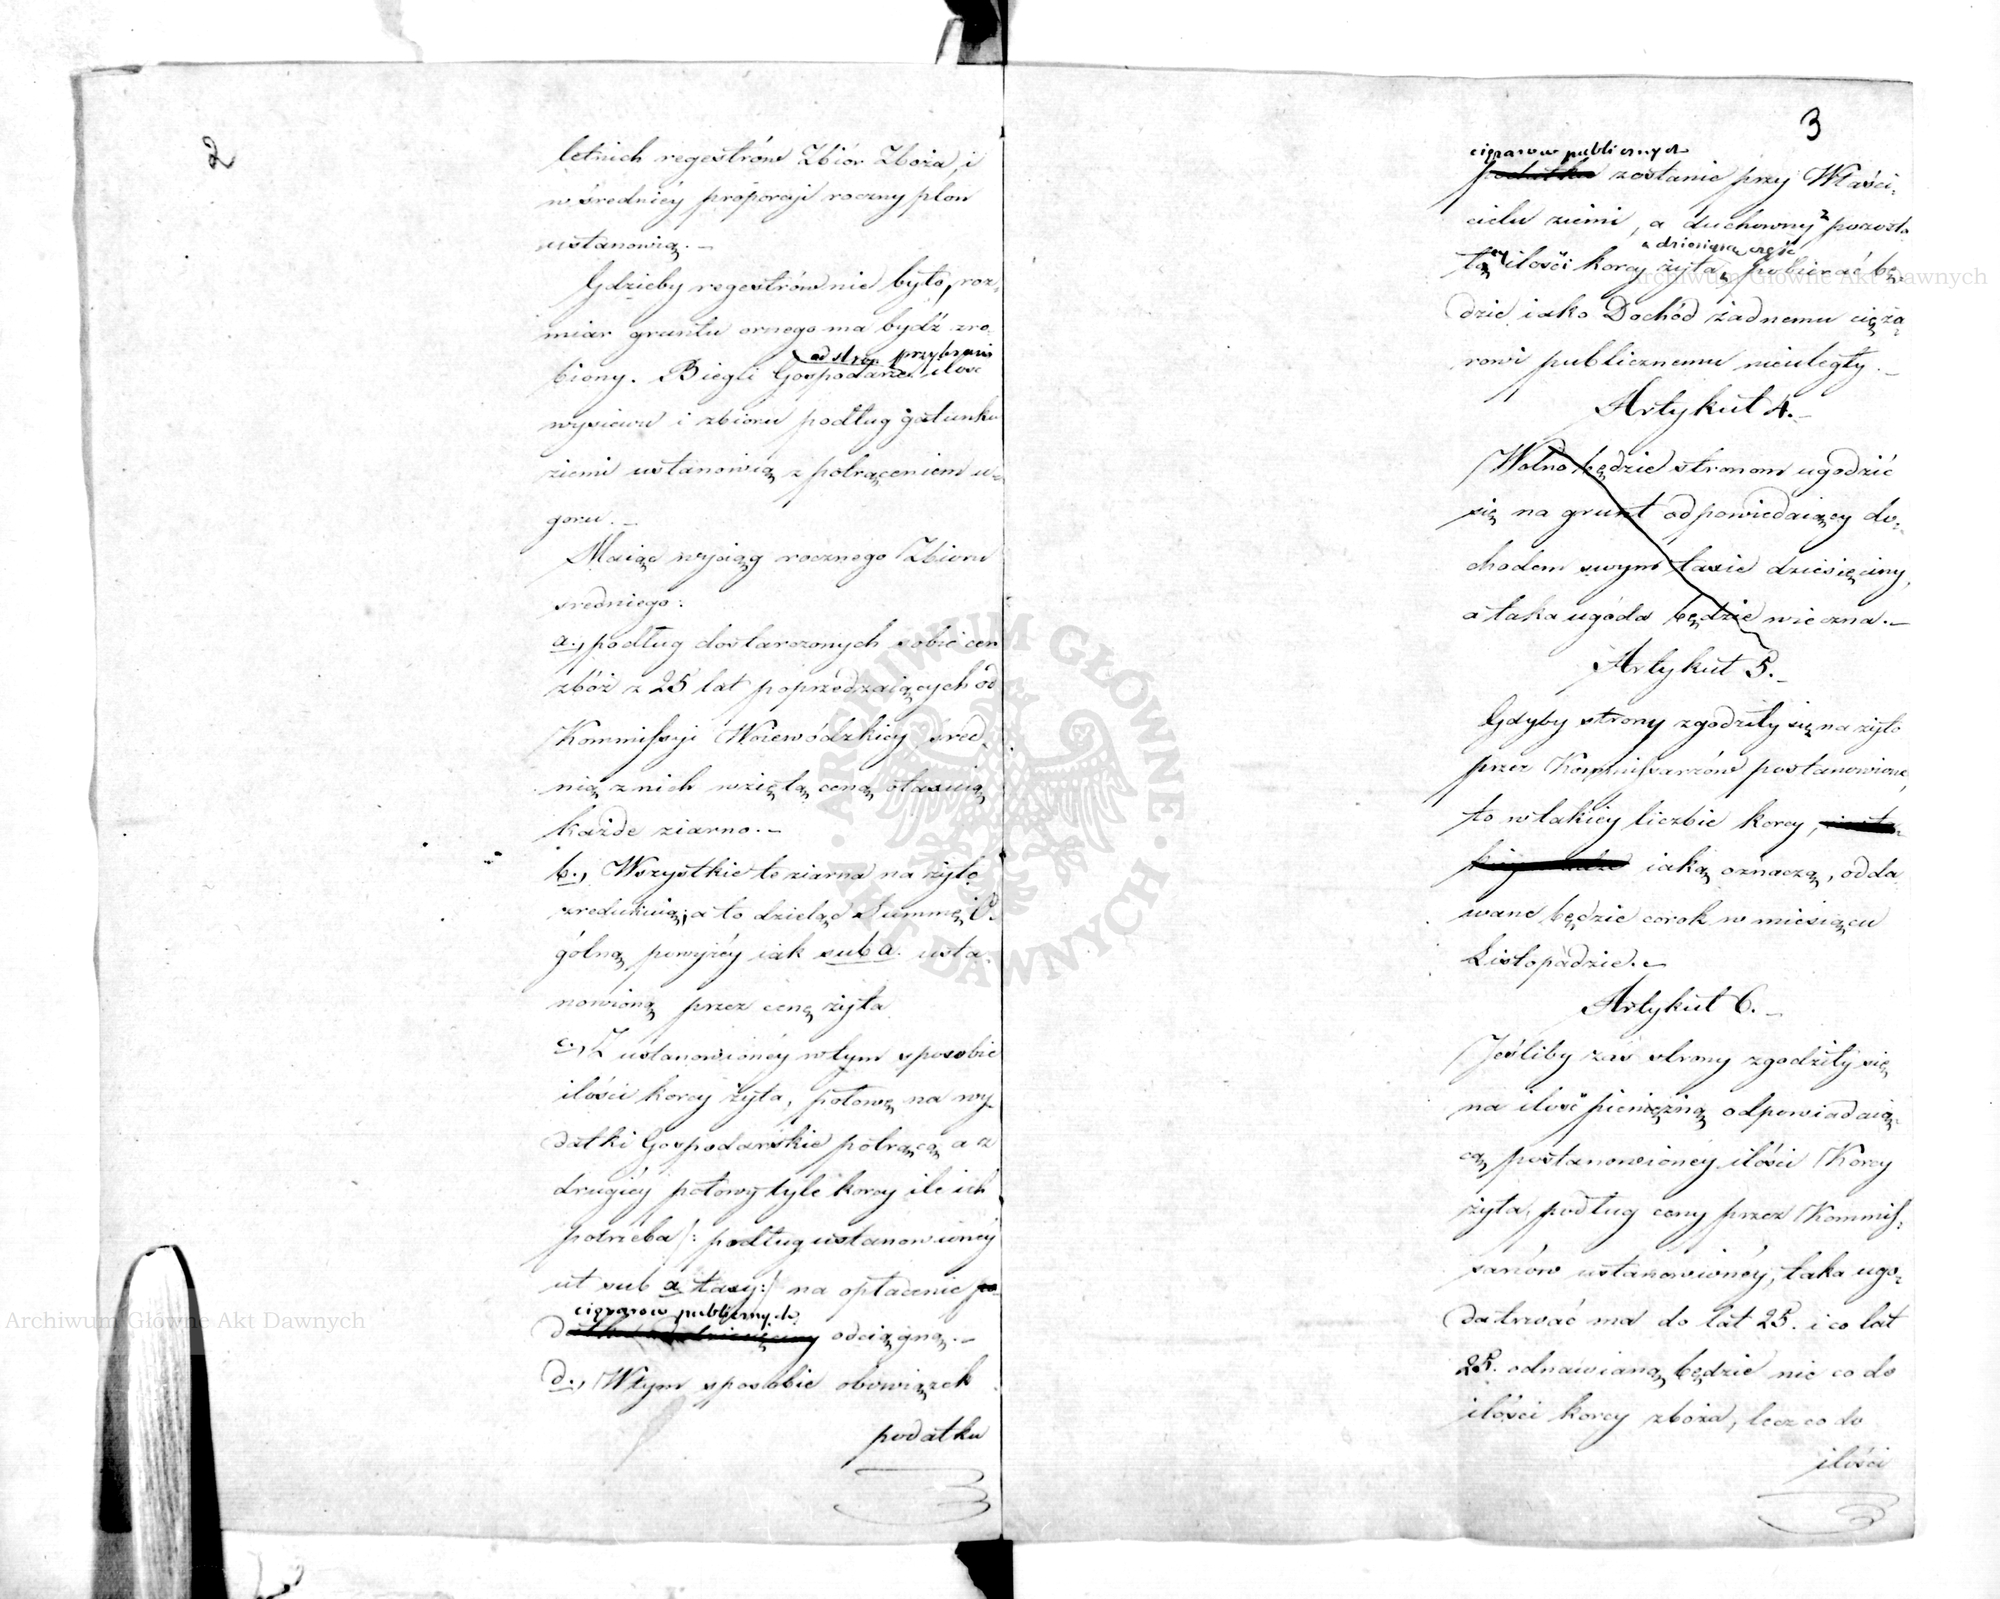 2
letnich regestrów Zbiór Zboża, i
w średniéy proporcyi roczny plon
ustanowią. —
Gdzieby regestrów nie było, roz-
miar gruntu ornego ma bydź zro
biony. Biegli Gospodarze ilość
od stron przybrani
wysiewu i zbioru podług gatunku
ziemi ustanowią z potrąceniem u-
goru. —
Maiąc wyciąg rocznego Zbioru
sredniego:
a., podług dostarczonych sobie cen
zbóż z 25 lat poprzedzaiących od
Kommissyi Woiewódzkiey śred-
nią z nich wziętą ceną otaxuią
każde ziarno. —
b., Wszystkie te ziarna na żyto
zredukuią, a to dzieląc Summę O-
gólną powyżéy iak sub a. usta-
nowioną przez cenę żyta
c., Z ustanowionéy w tym sposobie
ilości korcy żyta, połowę na wy-
datki Gospodarskie potrącą a z
drugiéy połowy tyle korcy ile ich
potrzeba /: podług ustanowionéy
ut sub a taxy :/ na opłacenie po
ciężarow publicznych
odciągną. —
d., W tym sposobie obowiązek
podatku
3
ciężarow publicznych
podatku zostanie przy Właści-
cielu ziemi, a duchowny z pozosta
łéy ilości korcy żyta, pobierać bę-
dziesiątą część
dzie iako Dochód żadnemu cięża-
rowi publicznemu nieuległy. —
Artykuł 4. —
Wolno będzie stronom ugodzić
się na grunt odpowiedaiący do-
chodem swym taxie dziesięciny,
a taka ugoda będzie wieczna. —
Artykuł 5. —
Gdyby strony zgodziły się na żyto
przez Kommissarzów postanowione,
to w takiey liczbie korcy,
iaką oznaczą, odda
wane będzie corok w miesiącu
Listopadzie. —
Artykuł 6. —
Jeśliby zaś strony zgodziły się
na ilość pieniężną odpowiadaią-
cą postanowionéy ilości Korcy
żyta, podług ceny przez Kommis-
sarzów ustanowionéy, taka ugo-
da trwać ma do lat 25. i co lat
25. odnawianą będzie nie co do
ilości korcy zboża, lecz co do
ilości
ARCHIWUM GŁÓWNE AKT DAWNYCH
Archiwum Główne Akt Dawnych
Archiwum Główne Akt Dawnych